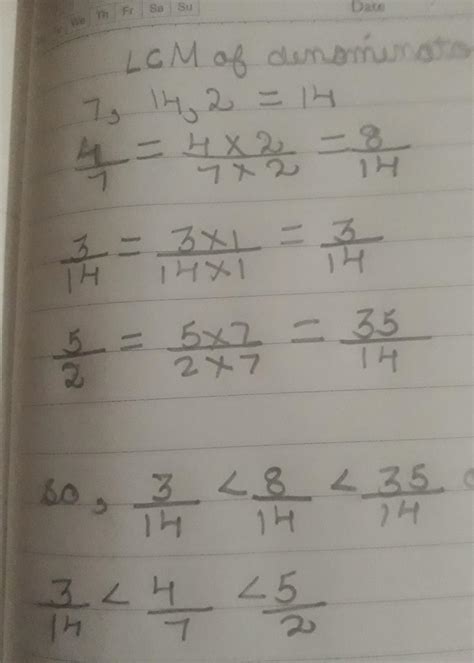 We Th Fr Sa Su Date
LCM of denominato
7, 14, 2 = 14
4/7 = 4×2/7×2 = 8/14
3/14 = 3×1/14×1 = 3/14
5/2 = 5×7/2×7 = 35/14
so, 3/14 < 8/14 < 35/14
3/14 < 4/7 < 5/2